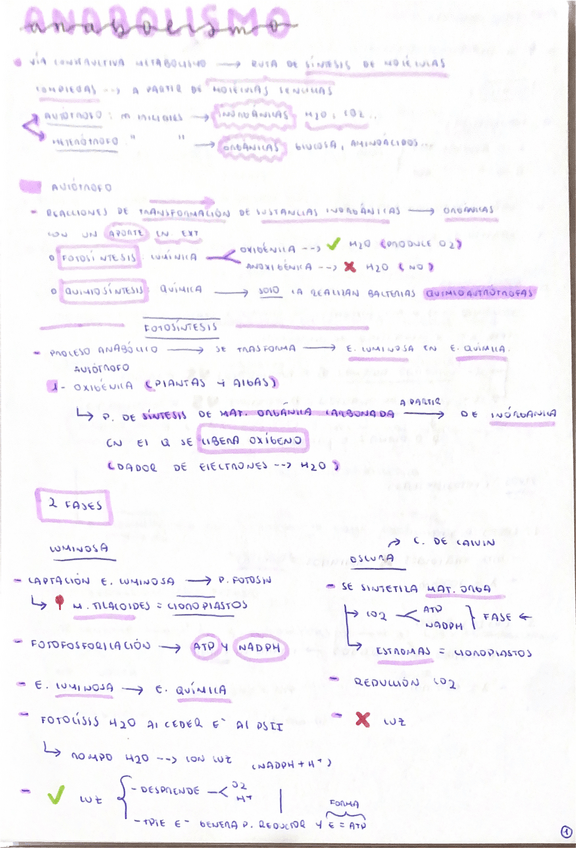 ANABOLISMO
anabolismo
VÍA CONSTRUCTIVA METABOLISMO → RUTA DE SÍNTESIS DE MOLÉCULAS
COMPLEJAS --> A PARTIR DE MOLÉCULAS SENCILLAS
AUTÓTROFO: M INICIALES → INORGÁNICAS H2O, CO2...
HETERÓTROFO " " → ORGÁNICAS GLUCOSA, AMINOÁCIDOS...
AUTÓTROFO
- REACCIONES DE TRANSFORMACIÓN DE SUSTANCIAS INORGÁNICAS → ORGÁNICAS
CON UN APORTE EN. EXT
FOTOSÍNTESIS LUMÍNICA
OXIGÉNICA --> ✓ H2O (PRODUCE O2)
ANOXIGÉNICA --> ✗ H2O (NO)
QUIMIOSÍNTESIS QUÍMICA → SOLO LA REALIZAN BACTERIAS QUIMIOAUTÓTROFAS
FOTOSÍNTESIS
- PROCESO ANABÓLICO → SE TRASFORMA → E. LUMINOSA EN E. QUÍMICA
AUTÓTROFO
1- OXIGÉNICA (PLANTAS Y ALGAS)
↳ P. DE SÍNTESIS DE MAT. ORGÁNICA CARBONADA → A PARTIR DE INÓRGANICA
EN EL Q SE LIBERA OXÍGENO
(DADOR DE ELECTRONES --> H2O)
2 FASES
LUMINOSA
- CAPTACIÓN E. LUMINOSA → P. FOTOSIN
↳ M. TILACOIDES = CLOROPLASTOS
- FOTOFOSFORILACIÓN → ATP Y NADPH
- E. LUMINOSA → E. QUÍMICA
- FOTÓLISIS H2O AL CEDER E- AL PSII
↳ ROMPO H2O --> CON LUZ (NADPH + H+)
- ✓ LUZ
- DESPRENDE O2 H+
- TPTE E- GENERA P. REDUCTOR Y E = ATP
FORMA
C. DE CALVIN
OSCURA
- SE SINTETIZA MAT. ORGA
CO2 ATP NADPH } FASE ←
ESTROMAS = CLOROPLASTOS
- REDUCCIÓN CO2
- ✗ LUZ
1